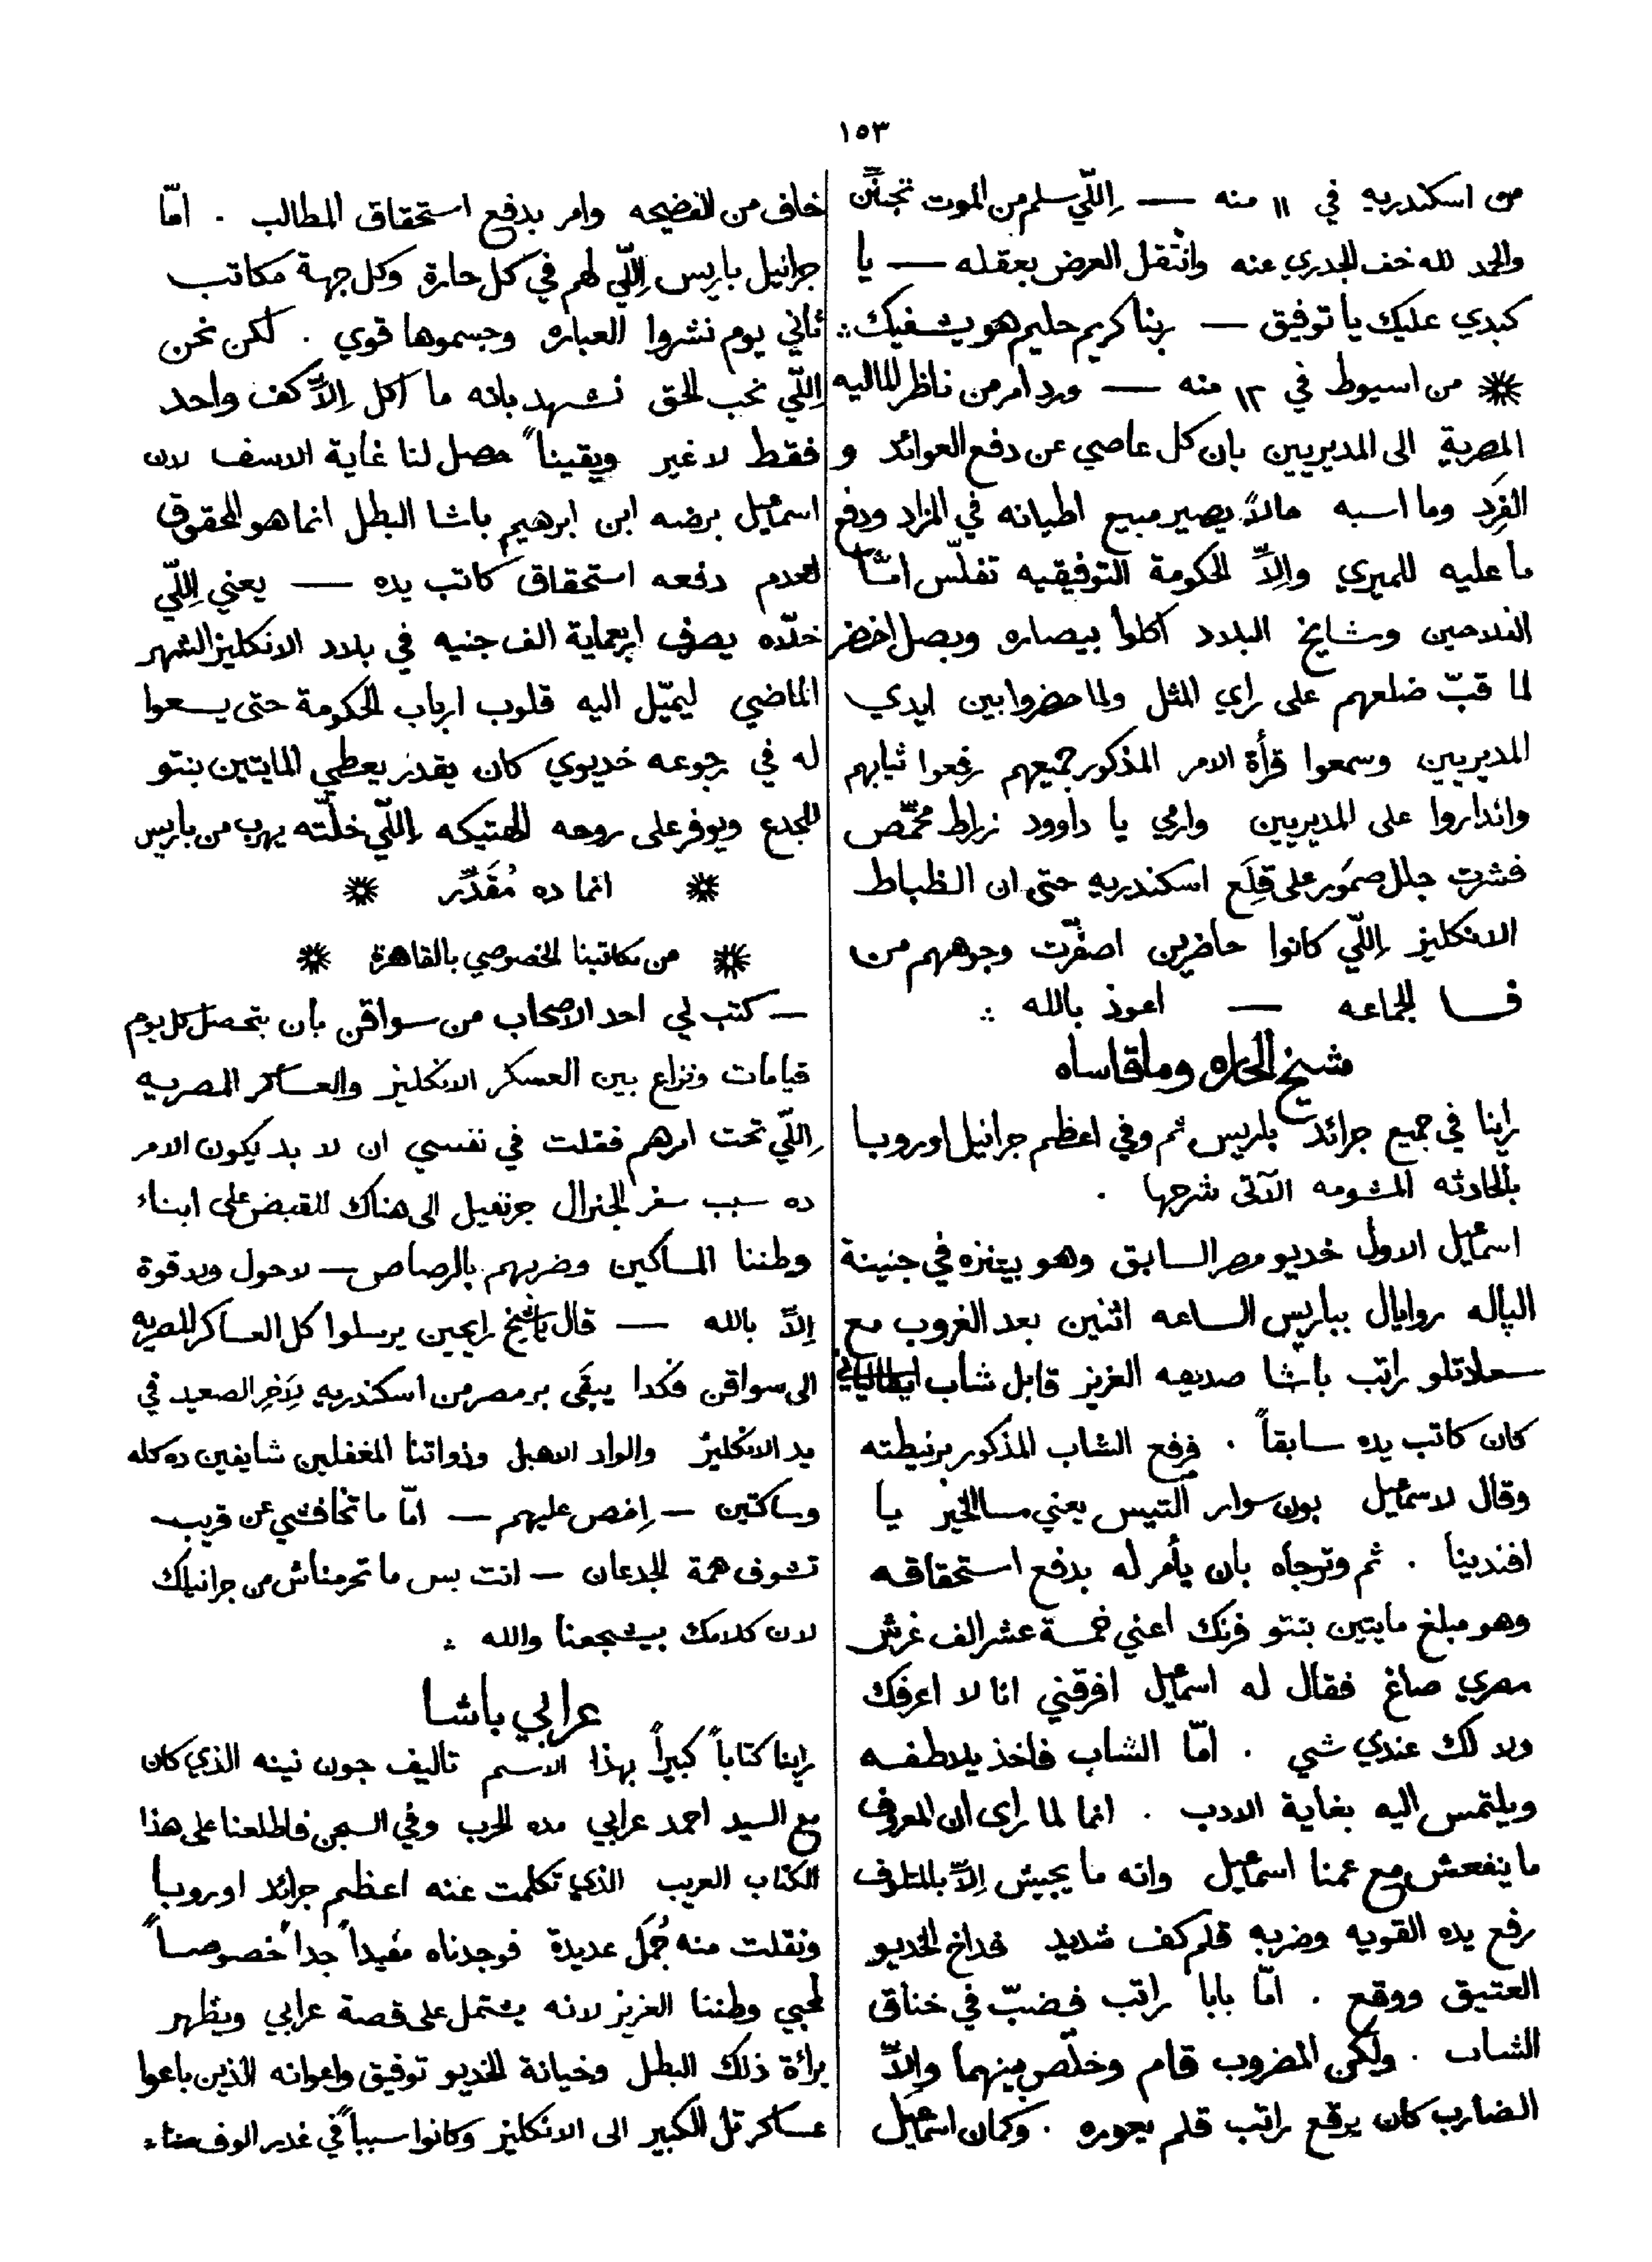 ١٥٣
من اسكندريه في ١١ منه — اِللّي سلم من الموت تجنّن
والحمد لله خف الجدري عنه وانتقل العرض بعقله — يا
كبدي عليك يا توفيق — ربنا كريم حليم هو يشفيك ∴
※ من اسيوط في ١٢ منه — ورد امر من ناظر الماليه
المصرية الى المديريين بان كل عاصي عن دفع العوائد و
الفِرَد وما اسبه حالاً يصير مبيع اطيانه في المزاد ودفع
ما عليه للميري واِلاّ الحكومة التوفيقيه تفلّس امّا
الفلاحين ومشايخ البلاد اكلوا بيصاره وبصل اخضر
لما قبّ ضلعهم على راي المثل ولما حضروا بين ايدي
المديريين وسمعوا قرأة الامر المذكور جميعهم رفعوا ثيابهم
واندارواعلى المديريين وارمي يا داوود زراط محمّص
فشرت جلل صمُور على قِلَع اسكندريه حتى ان الظباط
الانكليز اِللّي كانوا حاضرين اصفرّت وجوههم من
فسا الجماعه — اعوذ بالله ∴
شيخ الحاره وما قاساه
راينا في جميع جرائد باريس ثم وفي اعظم جرانيل اوروبا
بالحادثه المشومه الآتى شرحها .
اسمعيل الاول خديو مصر السابق وهو بيتنزه في جنينة
الپاله روايال بباريس الساعه اثنين بعد الغروب مع
سعادتلو راتب باشا صديعه العزيز قابل شاب ايطالياني
كان كاتب يده سابقاً . فرفع الشاب المذكور برنيطته
وقال لاسمعيل بون سوار التيس يعني مسا الخير يا
افندينا . ثم وترجاه بان يأمر له بدفع استحقاقه
وهو مبلغ مايتين بنتو فرنك اعني خمسة عشر الف غرش
مصري صاغ فقال له اسمعيل افرقني انا لا اعرفك
ولا لك عندي شي . امّا الشاب فاخذ يلاطفه
ويلتمس اليه بغاية الادب . انما لما راى ان المعروف
ما ينفعش مع عمنا اسمعيل وانه ما يجيش اِلاّ بالمتلوف
رفع يده القويه وضربه قلم كف شديد فداخ الخديو
العتيق ووقع . امّا بابا راتب فضبّ في خناق
الشاب . ولكن المضروب قام وخلّص بينهما واِلاّ
الضارب كان يرقع راتب قلم يعوره . وكان اسمعيل
خاف من الفضيحه وامر بدفع استحقاق المطالب . امّا
جرانيل باريس اِللّي لهم في كل حارة وكل جهة مكاتب
ثاني يوم نشروا العباره وجسموها قوي . لكن نحن
اِللّي نحب الحق نشهد بانه ما اكل اِلاّ كف واحد
فقط لا غير ويقيناً حصل لنا غاية الاسف لان
اسمعيل برضه ابن ابرهيم باشا البطل انما هو المحقوق
لعدم دفعه استحقاق كاتب يده — يعني اِللّي
خلّاه يصرف اربعماية الف جنيه في بلاد الانكليز الشهر
الماضي ليميّل اليه قلوب ارباب الحكومة حتى يسعوا
له في رجوعه خديوي كان يقدر يعطي المايتين بنتو
للجدع ويوفر على روحه الهتيكه اِللّي خلّته يهرب من باريس
※ انما ده مُقَدّر ※
※ من مكاتبنا الخصوصي بالقاهرة ※
— كتب لي احد الاصحاب من سواقن بان بتحصل كل يوم
قيامات ونزاع بين العسكر الانكليز والعساكر المصريه
اِللّي تحت امرهم فقلت في نفسي ان لا بد يكون الامر
ده سبب سفر الجنرال جرنفيل الى هناك للقبض على ابناء
وطننا المساكين وضربهم بالرصاص — لا حول ولا قوة
اِلاّ بالله — قال يا شيخ رايحين يرسلوا كل العساكر المصريه
الى سواقن فكدا يبقَى بر مصر من اسكندريه لاَخِر الصعيد في
يد الانكليز والواد الاهبل وذواتنا المغفلين شايفين ده كله
وساكتين — اِخص عليهم — امّا ما تخافشي عن قريب
تشوف همة الجدعان — انت بس ما تحرمناش من جرانيلك
لان كلامك بيشجعنا والله ∴
عرابي باشا
راينا كتاباً كبيراً بهذا الاسم تاليف جون نينه الذي كان
مع السيد احمد عرابي مده الحرب وفي السجن فاطلعنا على هذا
الكتاب العريب الذي تكلمت عنه اعظم جرائد اوروبا
ونقلت منه جُمَل عديدة فوجدناه مفيداً جداً خصوصاً
لمحبي وطننا العزيز لانه يشتمل على قصة عرابي ويظهر
براءة ذلك البطل وخيانة الخديو توفيق واعوانه الذين باعوا
عساكر تل الكبير الى الانكليز وكانوا سبباً في غدر الوف منا